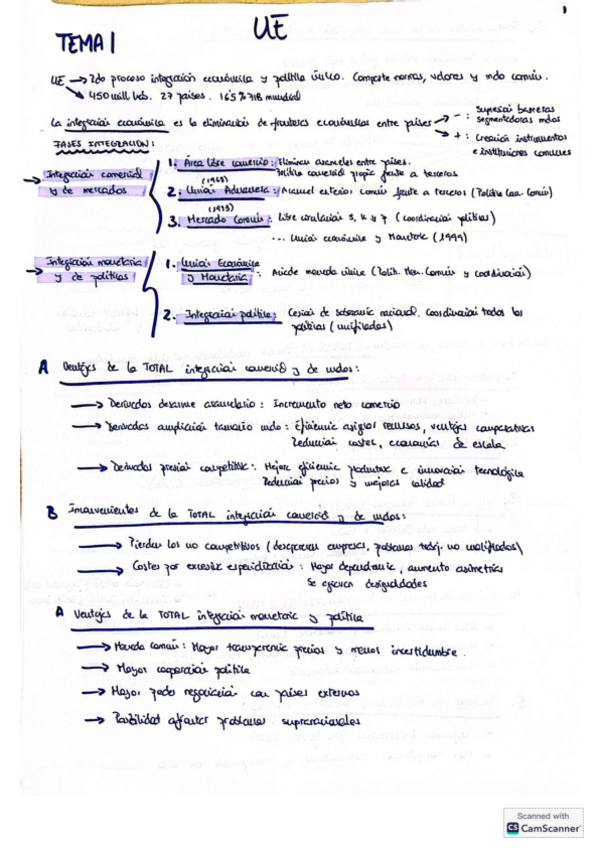 1
UE
TEMA 1
UE → 2do proceso integración económica y política único. Comparte normas, valores y mdo común.
→ 450 mill hab. 27 países. 16'5% PIB mundial
La integración económica es la eliminación de fronteras económicas entre países → - : Supresión barreras segmentadoras mdos
→ + : Creación instrumentos e instituciones comunes
FASES INTEGRACIÓN:
→ Integración comercial y de mercados
1. Área libre comercio: Eliminan aranceles entre países.
Política comercial propia frente a terceros
(1968)
2. Unión Aduanera: Arancel exterior común frente a terceros (Política Com. Común)
(1993)
3. Mercado Común: libre circulación S, K y T (coordinación políticas)
... Unión económica y Monetaria (1999)
→ Integración monetaria y de políticas
1. Unión Económica y Monetaria: Añade moneda única (Polít. Mon. Común y coordinación)
2. Integración política: Cesión de soberanía nacional. Coordinación todas las políticas (unificadas)
A Ventajas de la TOTAL integración comercial y de mdos:
→ Derivados desarme arancelario: Incremento neto comercio
→ Derivadas ampliación tamaño mdo: Eficiencia asignar recursos, ventajas comparativas
Reducción costes, economías de escala
→ Derivados presión competitiva: Mejora eficiencia productiva e innovación tecnológica
Reducción precios y mejora calidad
B Inconvenientes de la TOTAL integración comercial y de mdos:
→ Pierden los no competitivos (desaparecen empresas, problemas trabj. no cualificados)
→ Costes por excesiva especialización: Mayor dependencia, aumento asimetrías
Se agravan desigualdades
A Ventajas de la TOTAL integración monetaria y política
→ Moneda común: Mayor transparencia precios y menos incertidumbre.
→ Mayor cooperación política
→ Mayor poder negociación con países externos
→ Posibilidad afrontar problemas supranacionales
Scanned with
CS CamScanner